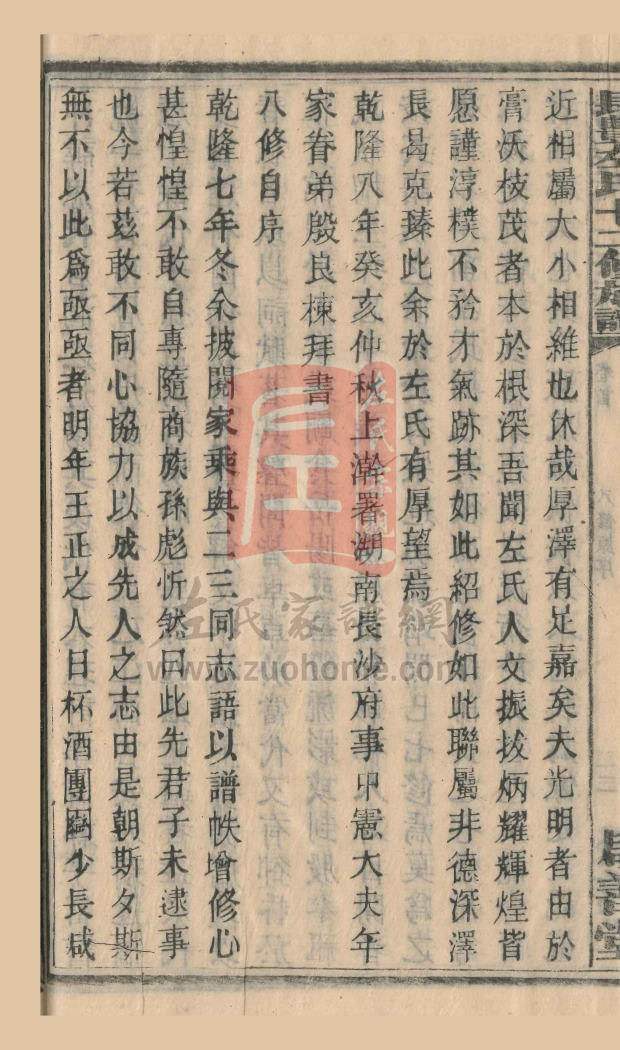 長豐左氏十二修族譜 卷首 八修原序 思善堂
近相屬大小相維也休哉厚澤有足嘉矣夫光明者由於
膏沃枝茂者本於根深吾聞左氏人文振拔炳耀輝煌皆
愿謹淳樸不矜才氣跡其如此紹修如此聯屬非德深澤
長曷克臻此余於左氏有厚望焉
乾隆八年癸亥仲秋上澣署湖南長沙府事中憲大夫年
家眷弟殷良棟拜書
八修自序
乾隆七年冬余披閱家乘與二三同志語以譜帙增修心
甚惶惶不敢自專隨商族孫彪忻然曰此先君子未逮事
也今若茲敢不同心協力以成先人之志由是朝斯夕斯
無不以此爲亟亟者明年王正之人日杯酒團圞少長咸
左氏家譜網
www.zuohome.com